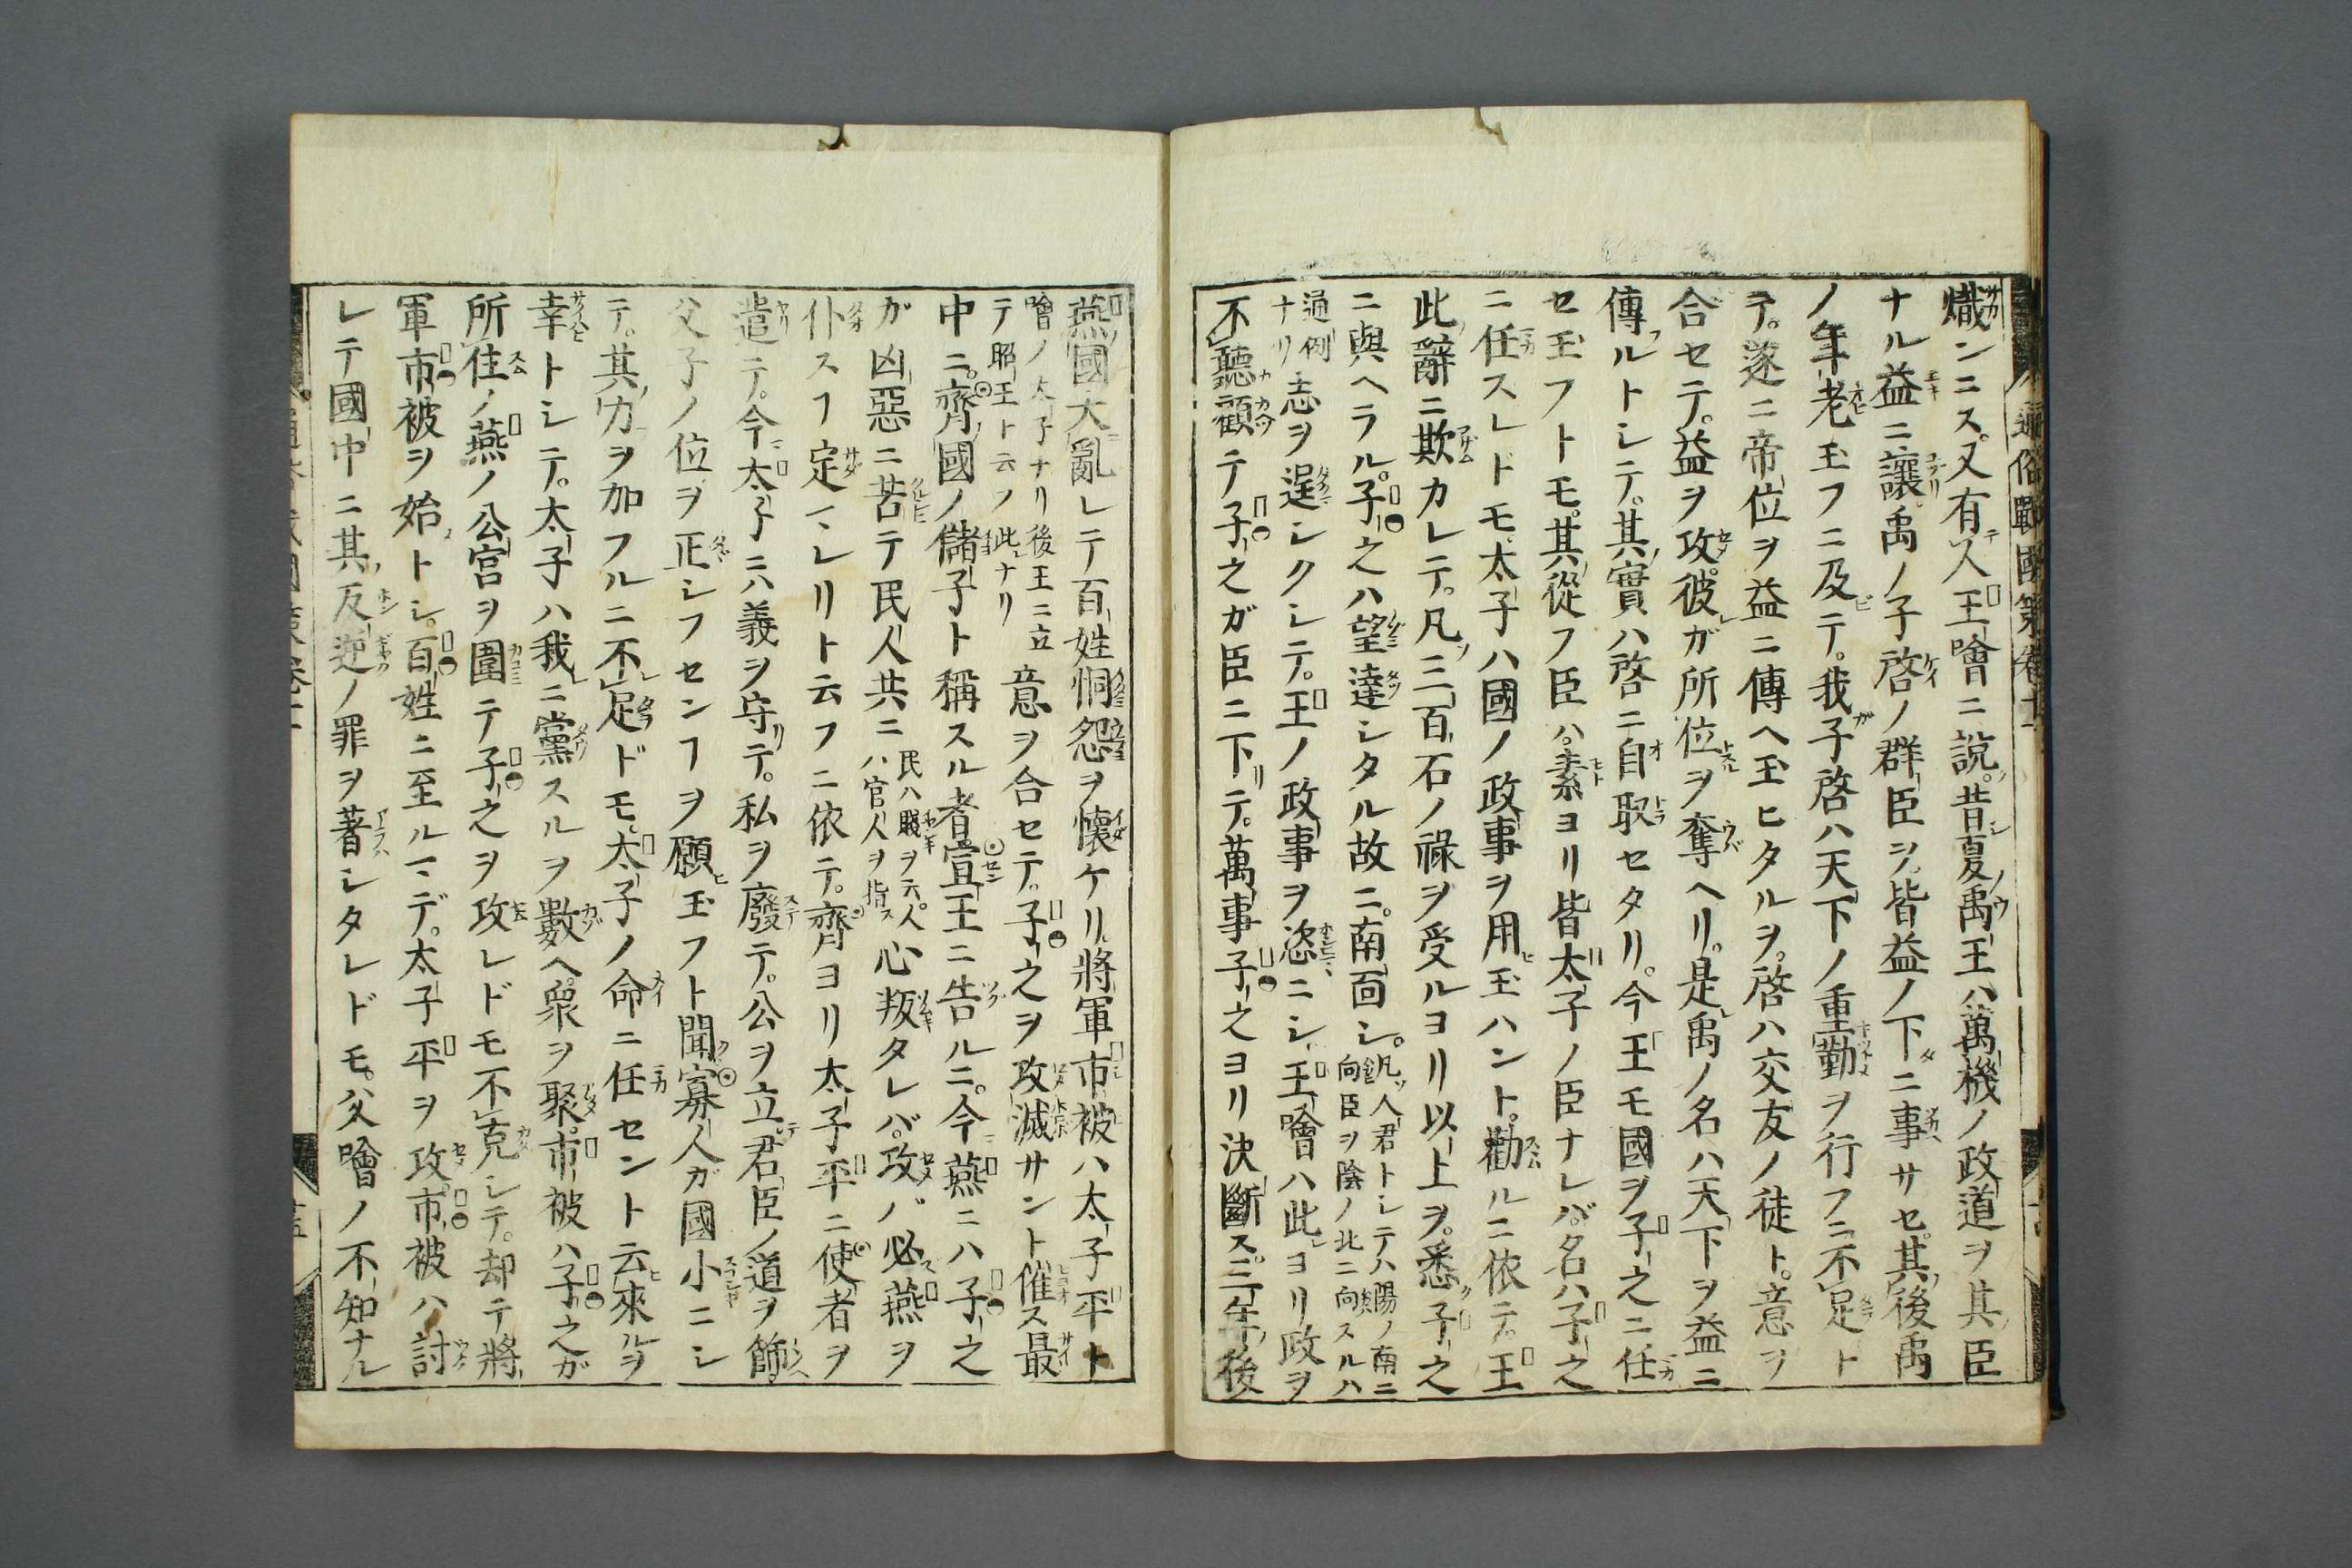 熾ンニス又有人王噲ニ説昔夏禹王ハ萬機ノ政道ヲ其臣
ナル益ニ讓禹ノ子啓ノ群臣ヲ皆益ノ下ニ事サセ其後禹
ノ年老玉フニ及テ我子啓ハ天下ノ重勤ヲ行フニ不足ト
テ遂ニ帝位ヲ益ニ傳ヘ玉ヒタルヲ啓ハ交友ノ徒ト意ヲ
合セテ益ヲ攻彼ガ所位ヲ奪ヘリ是禹ノ名ハ天下ヲ益ニ
傳ルトシテ其實ハ啓ニ自取セタリ今王モ國ヲ子之ニ任
セ玉フトモ其從フ臣ハ素ヨリ皆太子ノ臣ナレバ名ハ子之
ニ任スレドモ太子ハ國ノ政事ヲ用玉ハント勸ルニ依テ王
此辭ニ欺カレテ凡三百石ノ祿ヲ受ルヨリ以上ヲ悉子之
ニ與ヘラル子之ハ望達シタル故ニ南面シ
凡人君トシテハ陽ノ南ニ
向臣ヲ陰ノ北ニ向スルハ
通例
ナリ
志ヲ逞シクシテ王ノ政事ヲ恣ニシ王噲ハ此ヨリ政ヲ
不聽顧テ子之ガ臣ニ下テ萬事子之ヨリ決斷ス三年後
通俗戰國策卷十
燕國大亂レテ百姓恫怨ヲ懷ケリ將軍市被ハ太子平ト
噲ノ太子ナリ後王ニ立
テ昭王ト云フ此ナリ
意ヲ合セテ子之ヲ攻滅サント催ス最
中ニ齊國ノ儲子ト稱スル者宣王ニ告ルニ今燕ニハ子之
ガ凶惡ニ苦テ民人共ニ
民ハ賤ヲ云人
ハ官人ヲ指ス
心叛タレバ攻バ必燕ヲ
仆スフ定マレリト云フニ依テ齊ヨリ太子平ニ使者ヲ
遣テ今太子ニハ義ヲ守テ私ヲ廢テ公ヲ立君臣ノ道ヲ飾
父子ノ位ヲ正シフセンフヲ願玉フト聞寡人ガ國小ニシ
テ其力ヲ加フルニ不足ドモ太子ノ命ニ任セント云來ルヲ
幸トシテ太子ハ我ニ黨スルヲ數ヘ衆ヲ聚市被ハ子之ガ
所住ノ燕ノ公宮ヲ圍テ子之ヲ攻レドモ不克シテ却テ將
軍市被ヲ始トシ百姓ニ至ルマデ太子平ヲ攻市被ハ討
レテ國中ニ其反逆ノ罪ヲ著シタレドモ父噲ノ不知ナレ